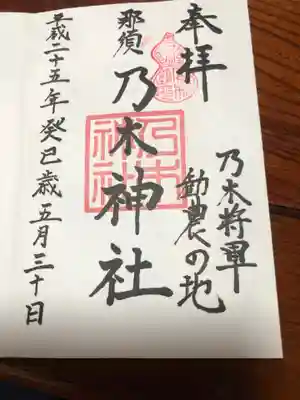 奉拝
乃木将軍
勧農の地
那須
乃木神社
乃木神社
平成二十五年癸巳歳五月三十日